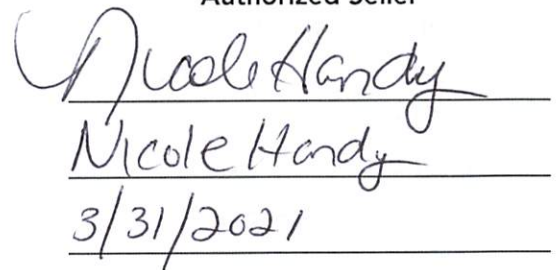 Authorized Seller
Nicole Handy
Nicole Handy
3/31/2021